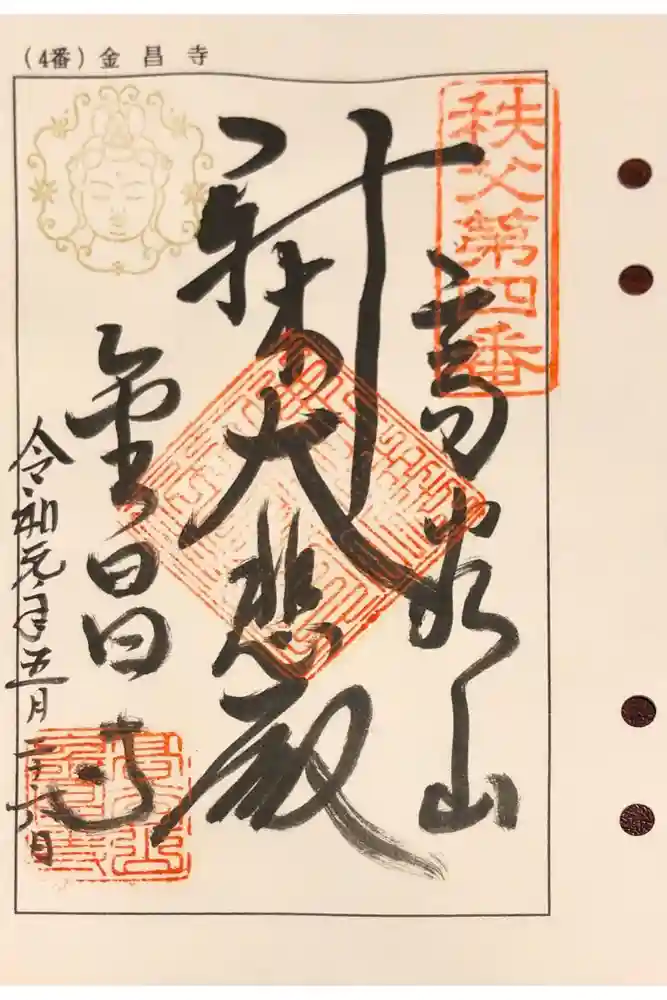 (4番) 金昌寺
秩父第四番
高谷山
大悲殿
金昌寺
令和元年五月二十六日